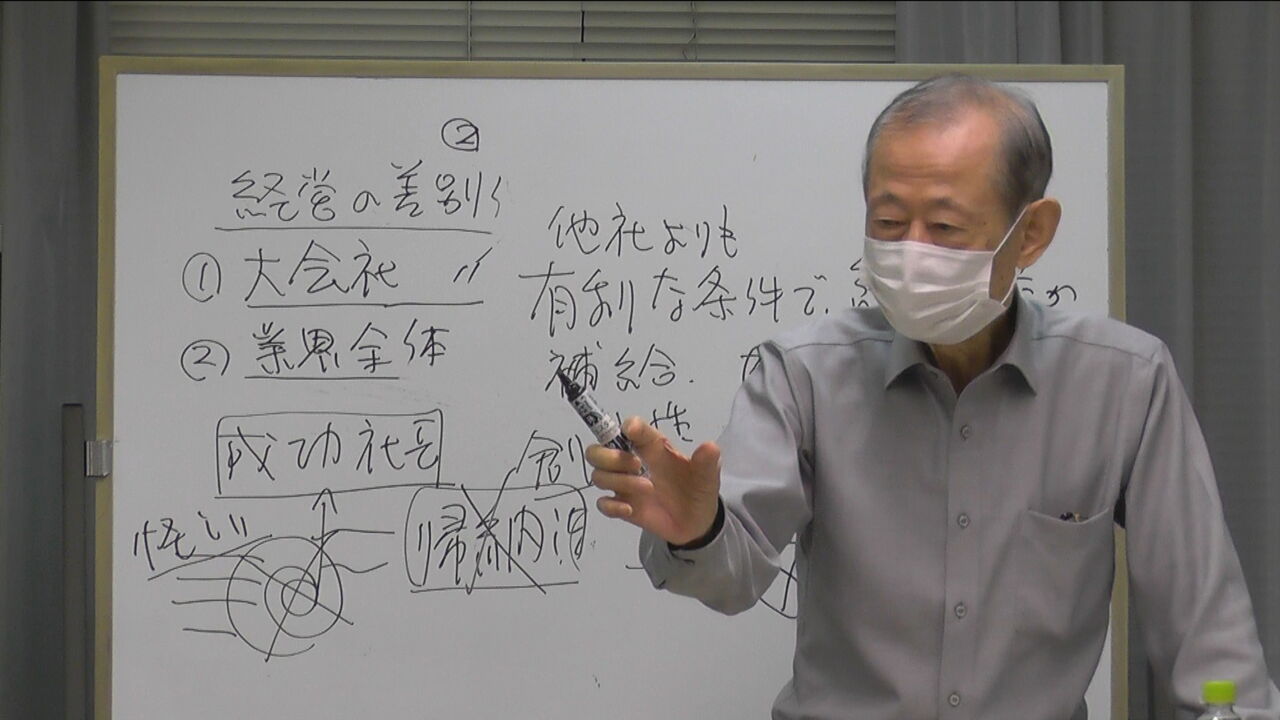 ②
経営の差別く
① 大会社 〃
② 業界全体
成功社長
怪しい
帰納法
他社よりも
有利な条件で、
補給.
創 性